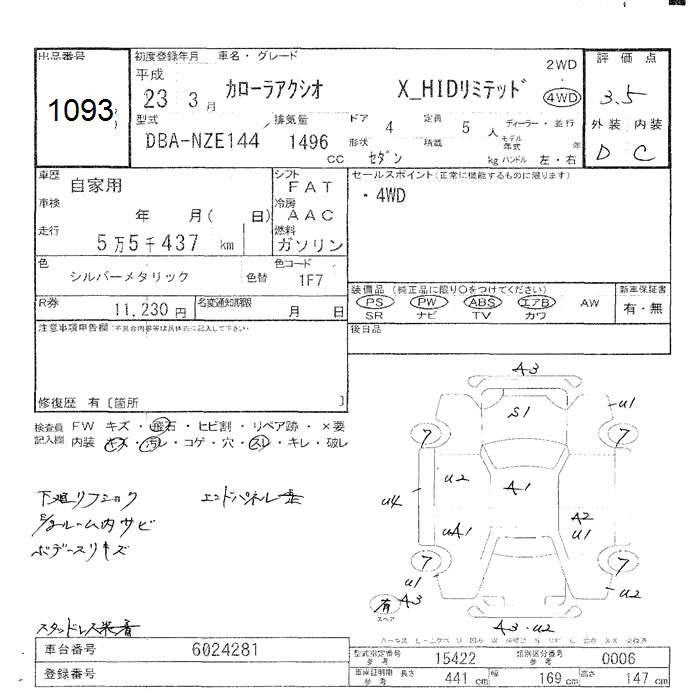 出品番号
1093
初度登録年月 車名・グレード
平成
23 3月 カローラアクシオ X_HIDリミテッド
2WD
4WD
型式
DBA-NZE144
排気量
1496
CC
ドア 4
定員 5 人
ディーラー・並行
形状 セダン
積載
kg
モデル年式 年
ハンドル 左・右
評価点
3.5
外装 内装
D C
車歴 自家用
シフト FAT
車検 年 月( 日)
冷房 AAC
走行 5万5千437 km
燃料 ガソリン
色 シルバーメタリック 色替
色コード 1F7
R券 11,230円
名変通知期限 月 日
セールスポイント(正常に機能するものに限ります)
・4WD
装備品 (純正品に限り○をつけてください)
PS PW ABS エアB AW
SR ナビ TV カワ
新車保証書
有・無
後日品
注意事項申告欄(不具合内容等は具体的に記入して下さい)
修復歴 有〔箇所 〕
検査員 FW キズ・飛石・ヒビ割・リペア跡・×要
記入欄 内装 キズ・汚レ・コゲ・穴・スレ・キレ・破レ
エンドパネル
ルーム内サビ
スタッドレス装着
A3
S1
U1
7
7
U2
A1
U4
UA1
A2
U1
7
7
U1
A3
U2
有
スペア
A3・U2
車台番号 6024281
登録番号
型式指定番号 参考 15422
類別区分番号 参考 0006
車庫証明用 参考 長さ 441 cm 幅 169 cm 高さ 147 cm